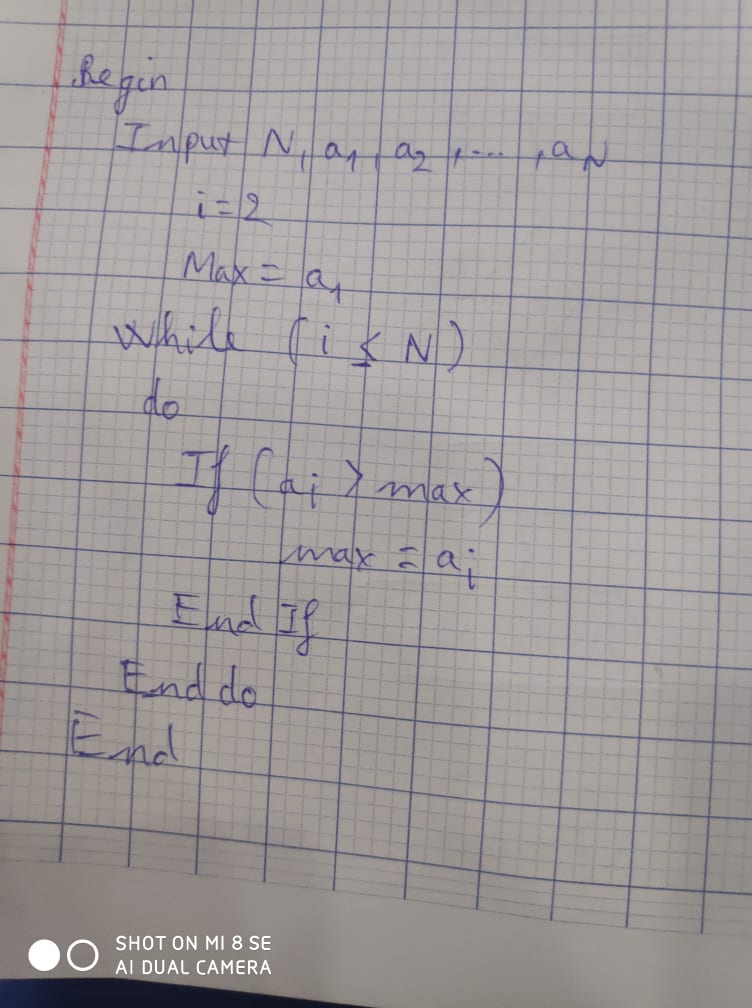 Begin
Input N, a1, a2, ...., aN
i=2
Max = a1
While (i ≤ N)
do
If (ai > max)
max = ai
End If
End do
End
SHOT ON MI 8 SE
AI DUAL CAMERA